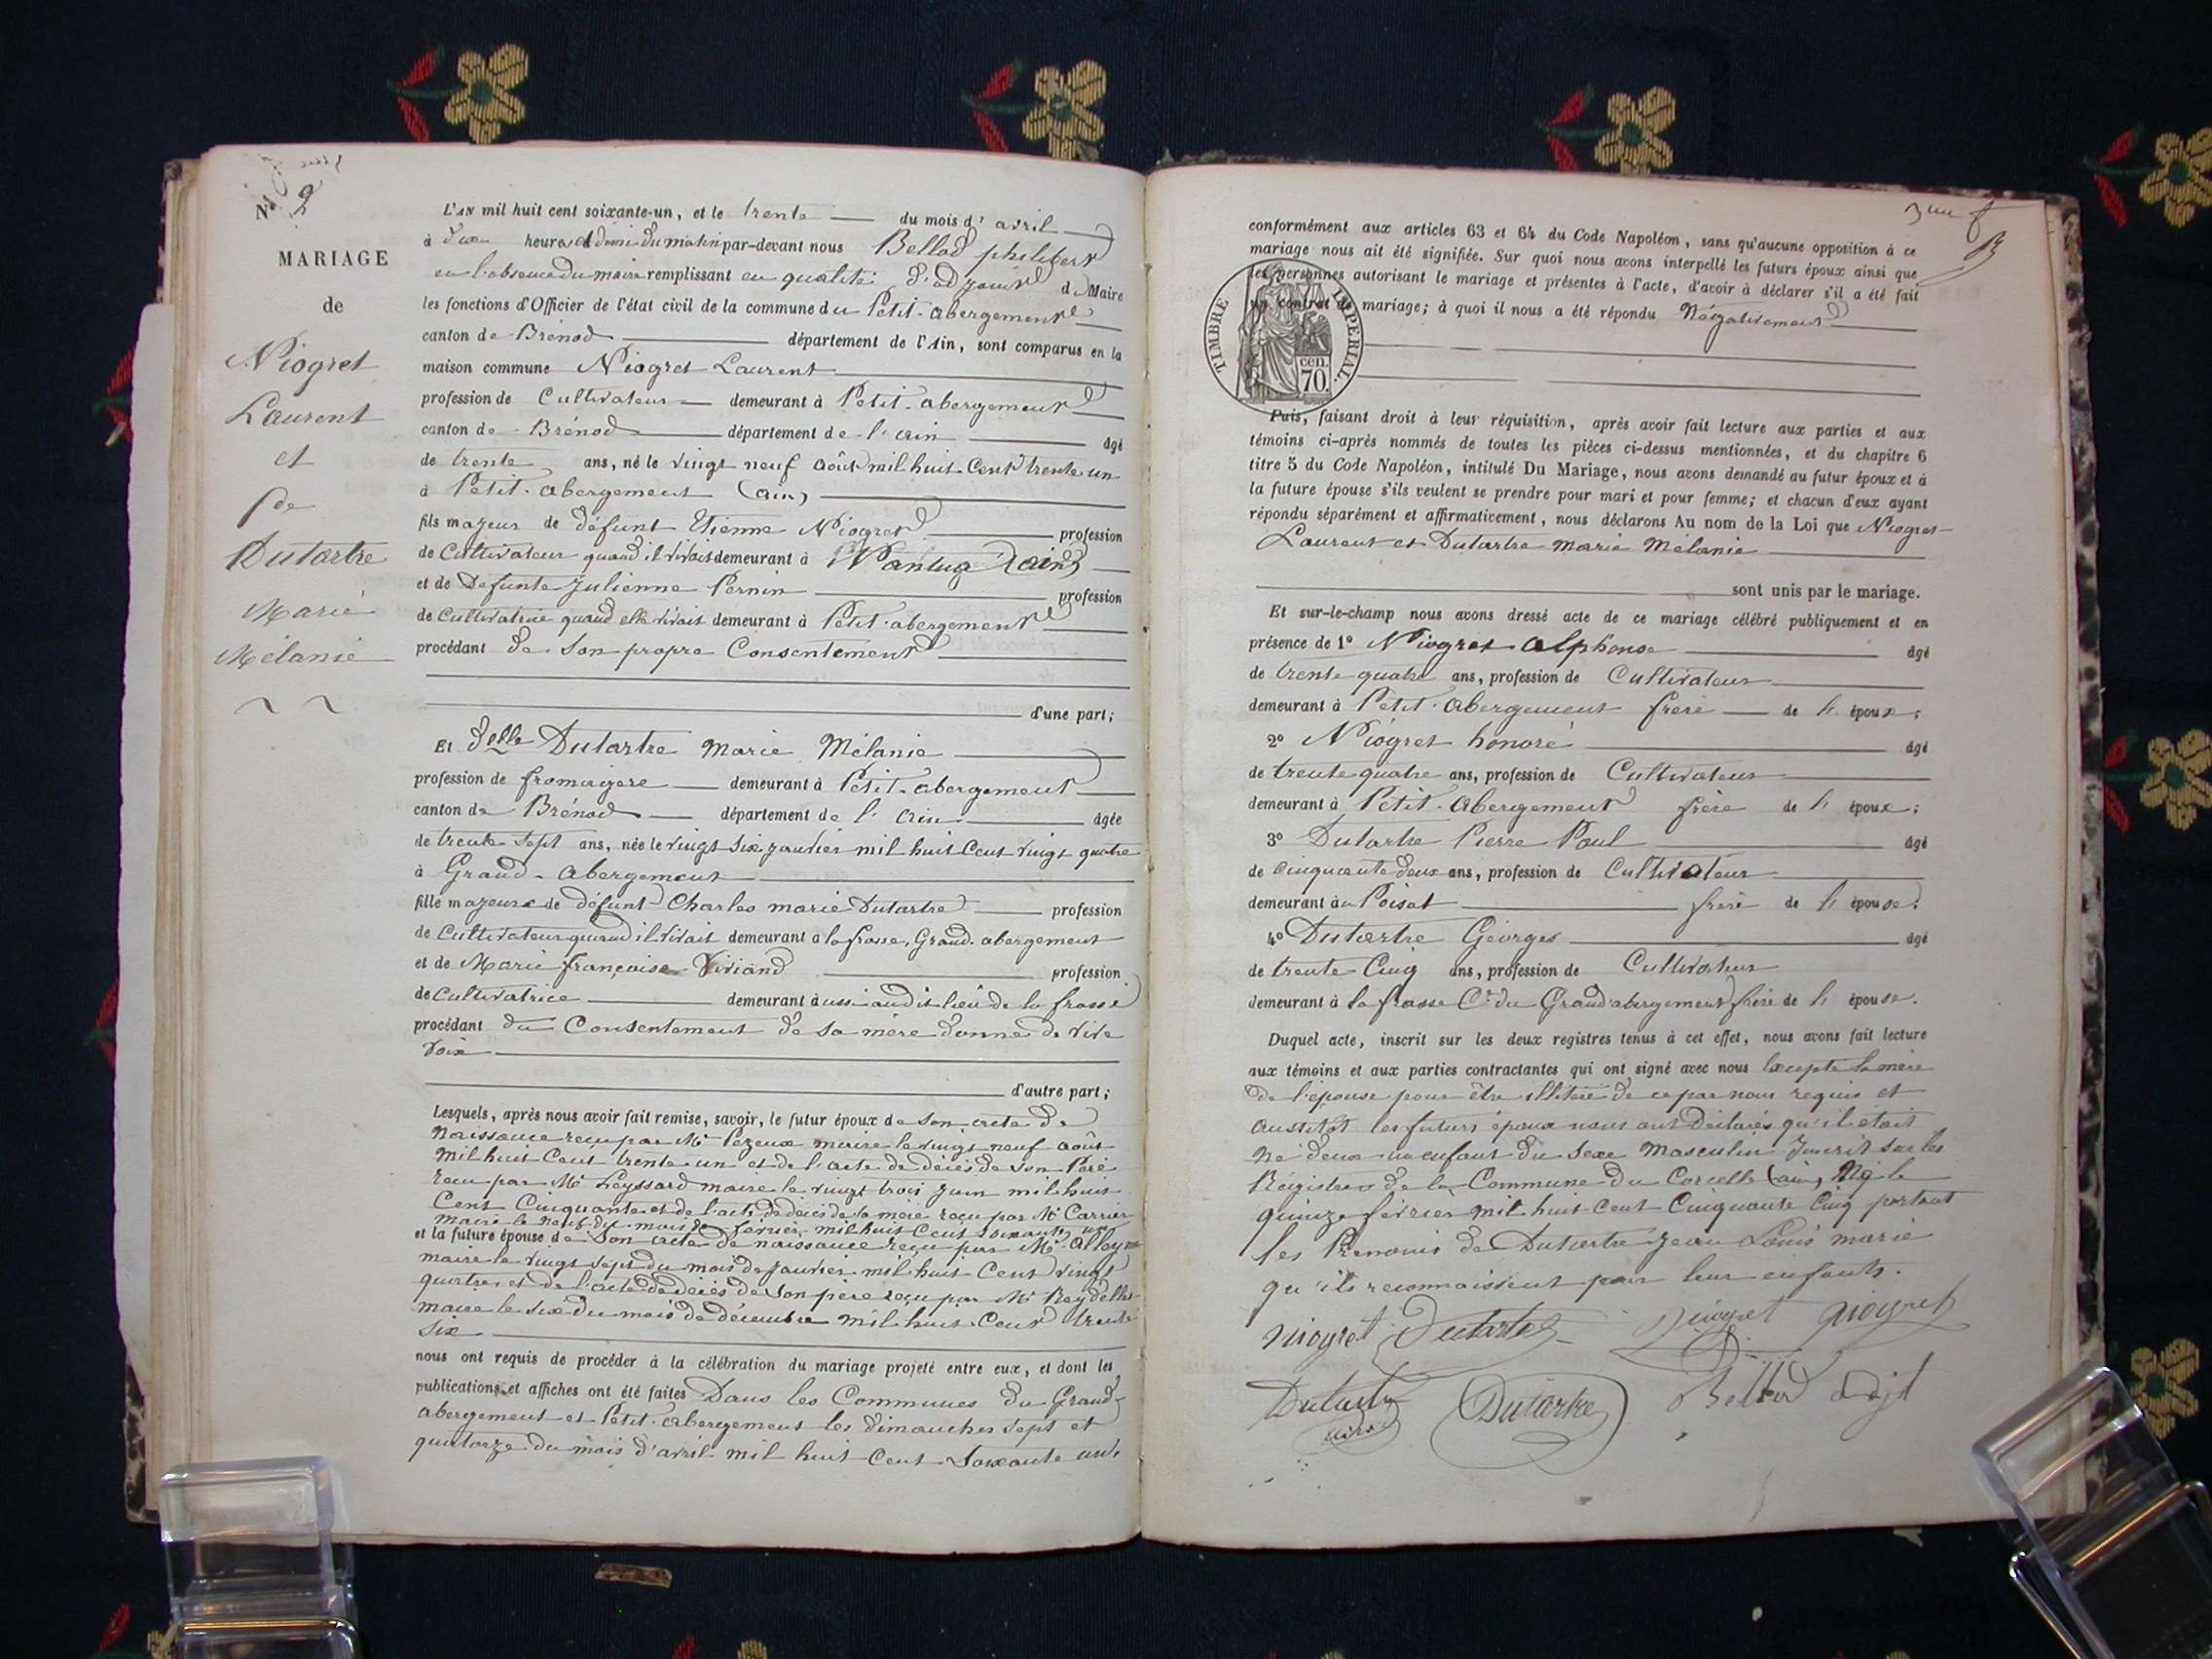 N° 2
MARIAGE
de
Niogret
Laurent
et
de
Dutartre
Marie
Mélanie
L'AN mil huit cent soixante-un, et le trente du mois d' avril
à heures et demi du matin par-devant nous Bellod philibert
en l'absence du maire remplissant en qualité d'adjoint d Maire
les fonctions d'Officier de l'état civil de la commune du Petit-abergement
canton de Brénod département de l'Ain, sont comparus en la
maison commune Niogret Laurent
profession de Cultivateur demeurant à Petit-abergement
canton de Brénod département de l'ain âgé
de trente ans, né le vingt neuf août mil huit Cent trente un
à Petit-abergement (ain)
fils majeur de défunt Etienne Niogret profession
de Cultivateur quand il vivait demeurant à Nantua (ain)
et de Défunte Julienne Pernin profession
de Cultivatrice quand elle vivait demeurant à Petit-abergement
procédant de Son propre Consentement
d'une part;
Et delle Dutartre Marie Mélanie
profession de fromagere demeurant à Petit-abergement
canton de Brénod département de l'ain âgée
de trente Sept ans, née le vingt Six janvier mil huit Cent vingt quatre
à Grand-abergement
fille majeure de défunt Charles marie Dutartre profession
de Cultivateur quand il vivait demeurant à la frasse, Grand-abergement
et de Marie françoise Viviand profession
de Cultivatrice demeurant aussi audit lieu de la frasse
procédant du Consentement de sa mère donné de vive
voix
d'autre part;
Lesquels, après nous avoir fait remise, savoir, le futur époux de Son acte de
Naissance reçu par Mr maire le vingt neuf août
mil huit Cent trente un et de l'acte de décès de Son Père
reçu par Mr Leyssard maire le vingt trois juin mil huit
Cent Cinquante et de l'acte de décès de Sa mère reçu par Mr Carrier
maire le neuf du mois de février mil huit Cent Soixante un
et la future épouse de Son acte de naissance reçu par Mr
maire le vingt Sept du mois de janvier mil huit Cent vingt
quatre, et de l'acte de décès de Son père reçu par Mr Reydellet
maire le Six du mois de décembre mil huit Cent trente
Six
nous ont requis de procéder à la célébration du mariage projeté entre eux, et dont les
publications et affiches ont été faites Dans les Communes du Grand
abergement et Petit-abergement les Dimanches Sept et
quatorze du mois d'avril mil huit Cent Soixante un
conformément aux articles 63 et 64 du Code Napoléon, sans qu'aucune opposition à ce
mariage nous ait été signifiée. Sur quoi nous avons interpellé les futurs époux ainsi que
les personnes autorisant le mariage et présentes à l'acte, d'avoir à déclarer s'il a été fait
un contrat de mariage; à quoi il nous a été répondu Négativement
TIMBRE IMPERIAL.
cen.
70.
Puis, faisant droit à leur réquisition, après avoir fait lecture aux parties et aux
témoins ci-après nommés de toutes les pièces ci-dessus mentionnées, et du chapitre 6
titre 5 du Code Napoléon, intitulé Du Mariage, nous avons demandé au futur époux et à
la future épouse s'ils veulent se prendre pour mari et pour femme; et chacun d'eux ayant
répondu séparément et affirmativement, nous déclarons Au nom de la Loi que Niogret
Laurent et Dutartre Marie Mélanie
sont unis par le mariage.
Et sur-le-champ nous avons dressé acte de ce mariage célébré publiquement et en
présence de 1° Niogret Alphonse âgé
de trente quatre ans, profession de Cultivateur
demeurant à Petit-abergement frère de l' époux;
2° Niogret honoré âgé
de trente quatre ans, profession de Cultivateur
demeurant à Petit-abergement frère de l' époux;
3° Dutartre Pierre Paul âgé
de cinquante deux ans, profession de Cultivateur
demeurant au Poizat frère de l' épouse;
4° Dutartre Georges âgé
de trente Cinq ans, profession de Cultivateur
demeurant à la frasse Cne du Grand abergement frère de l' épouse.
Duquel acte, inscrit sur les deux registres tenus à cet effet, nous avons fait lecture
aux témoins et aux parties contractantes qui ont signé avec nous Excepté la mère
de l'épouse pour être illitéré de ce par nous requis et
aussitôt les futurs époux nous ont Déclarés qu'il etait
né deux un enfant du Sexe Masculin Inscrit Sur les
Régistres de la Commune du Corcelle (ain) Né le
quinze février mil huit Cent Cinquante Cinq portant
les Prenoms de Dutartre Jean Louis marie
qu'ils reconnaissent pour leur enfants.
niogret Dutartre niogret niogret
Dutartre Dutartre Bellod adjt